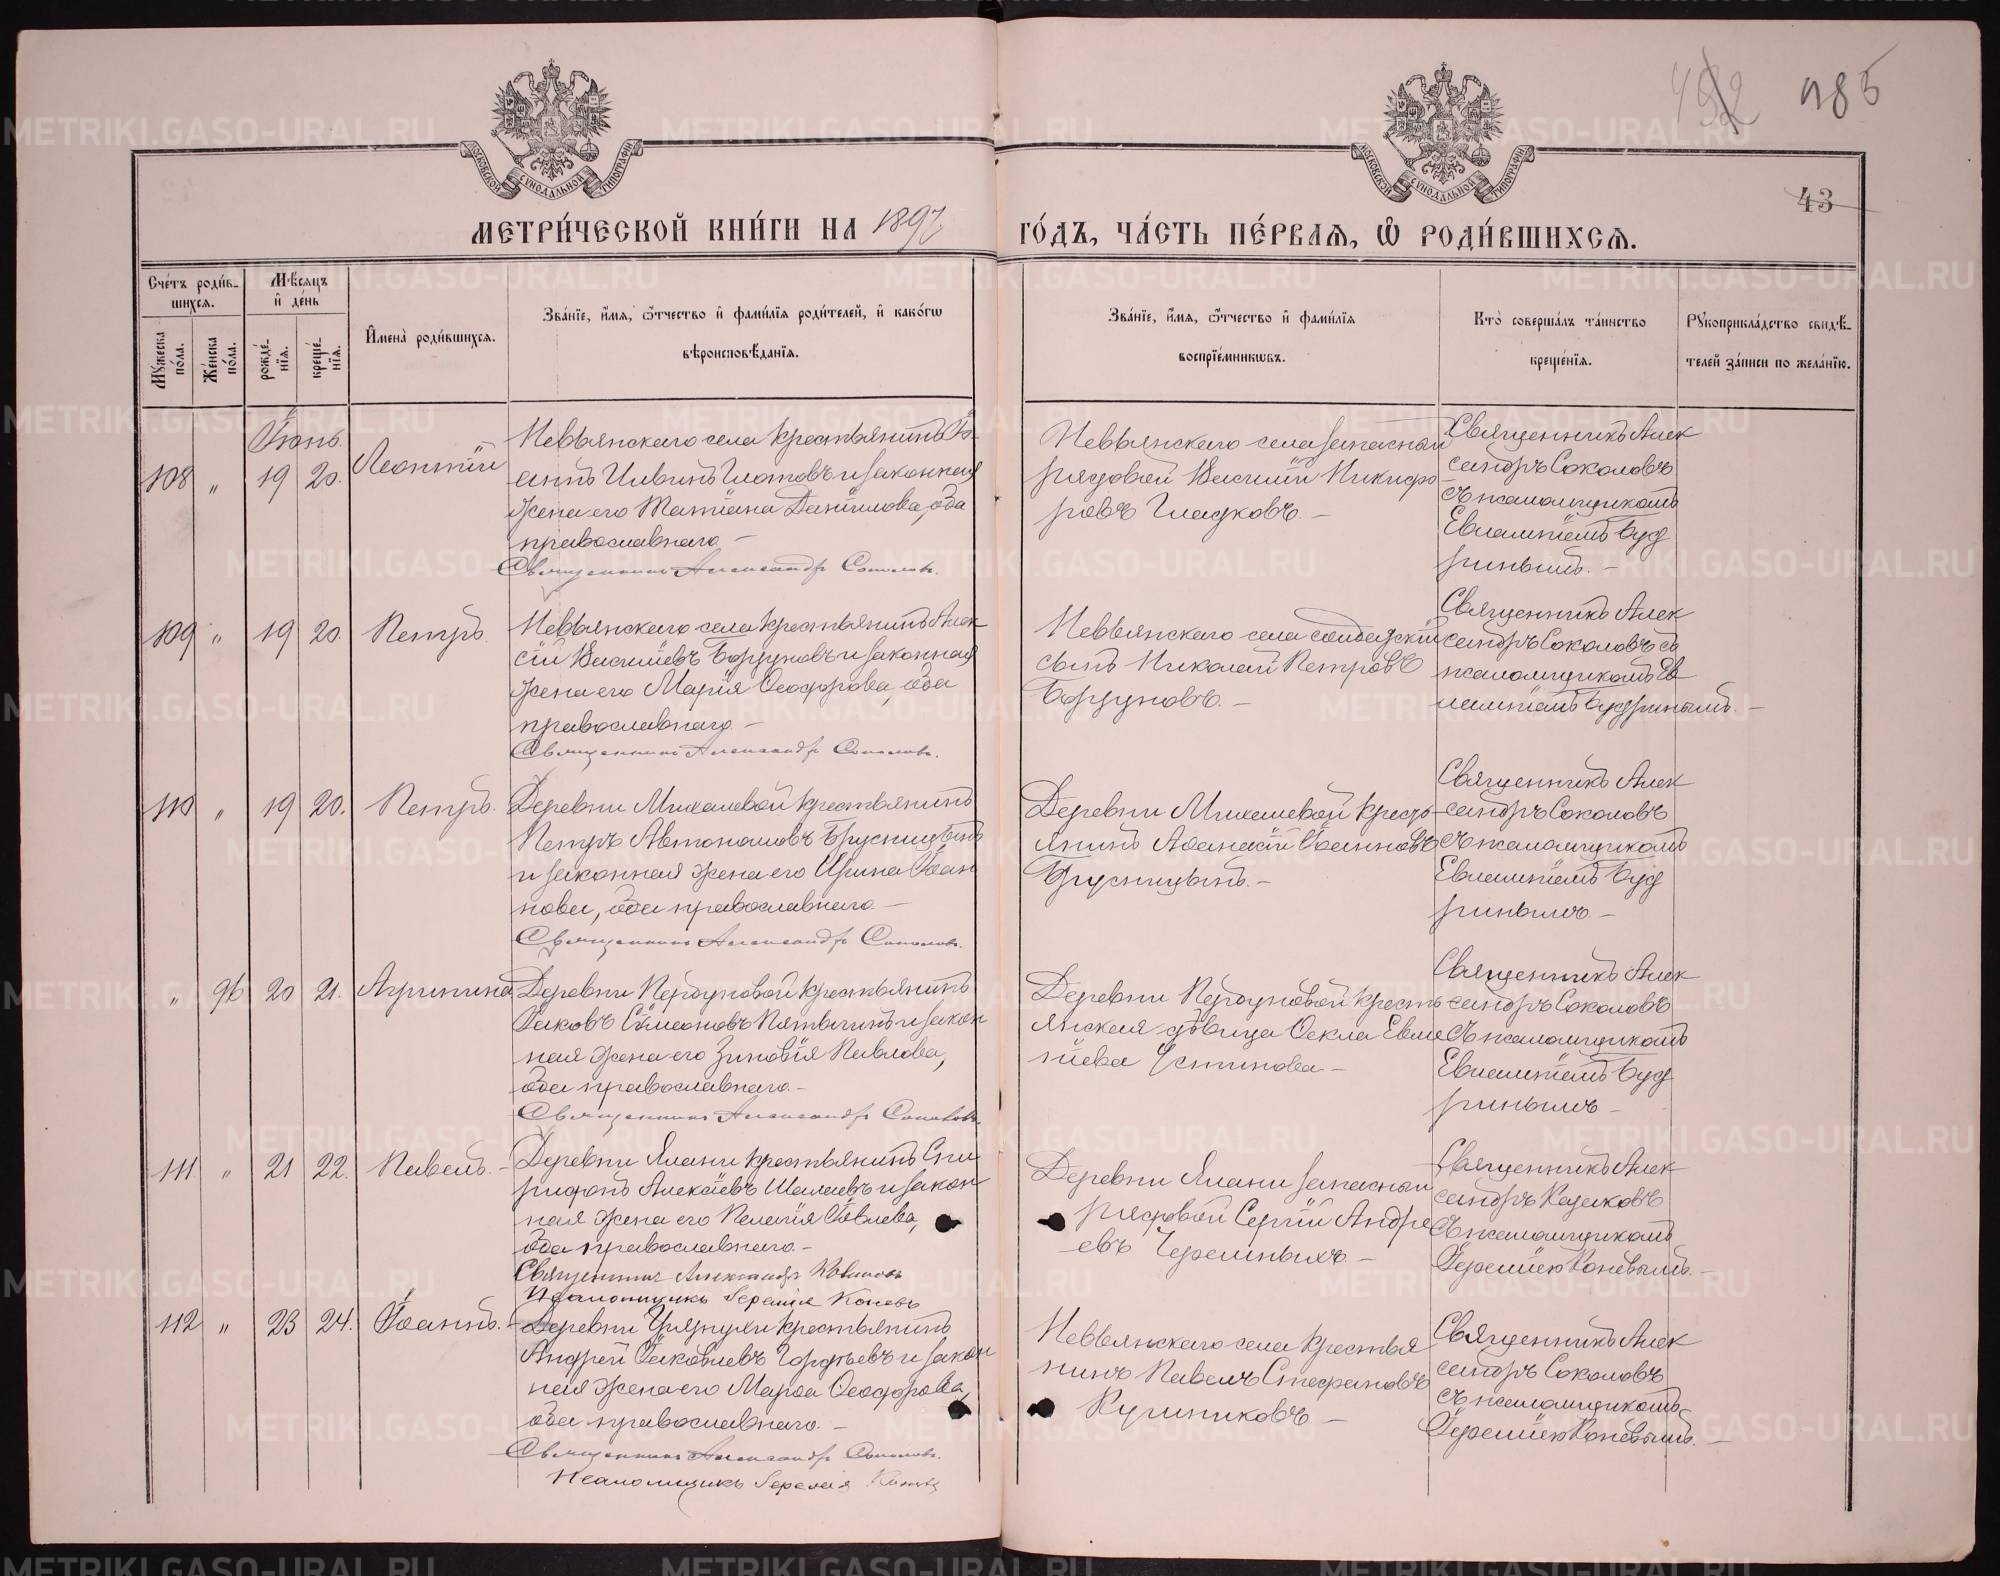 432 486
43
МОСКОВСКОЙ СѴНОДАЛЬНОЙ ТИПОГРАФІИ
МОСКОВСКОЙ СѴНОДАЛЬНОЙ ТИПОГРАФІИ
МЕТРИ́ЧЕСКОЙ КНИ́ГИ НА 1897 ГО́ДЪ, ЧА́СТЬ ПЕ́РВАЯ, Ѡ РОДИ́ВШИХСЯ.
Сче́тъ роди́в-
шихся.
Мѣ́сяцъ
и де́нь
Му́жеска по́ла.
Же́нска по́ла.
рожде́-
нїя.
креще́-
нїя.
Имена̀ роди́вшихся.
Зва́нїе, и́мя, ѻ́тчество и фами́лїя роди́телей, и како́гѡ
вѣроисповѣ́данїя.
Зва́нїе, и́мя, ѻ́тчество и фами́лїя
воспрїе́мникѡвъ.
Кто̀ соверша́лъ та́инство
креще́нїя.
Рукоприкла́дство свидѣ́-
телей за́писи по жела́нїю.
Іюнь.
108 " 19 20. Леонтій
Невьянскаго села крестьянинъ Іо-
аннъ Глотовъ и законная
жена его Татіана Даніилова, оба
православнаго. –
Священникъ Александръ Соколовъ.
Невьянскаго села запасный
рядовой Василій Никифо
ровъ Гладковъ. –
Священникъ Алек
сандръ Соколовъ
съ псаломщикомъ
Евлампіемъ Буд
ринымъ. –
109 " 19 20. Петръ.
Невьянскаго села крестьянинъ Алек-
сій Васильевъ Боруновъ и законная
жена его Марія Ѳеодорова, оба
православнаго. –
Священникъ Александръ Соколовъ.
Невьянскаго села солдатскій
сынъ Николай Петровъ
Боруновъ. –
Священникъ Алек
сандръ Соколовъ съ
псаломщикомъ Ев
лампіемъ Будринымъ. –
110 " 19 20. Петръ.
Деревни Михалевой крестьянинъ
Петръ Автономовъ Брусницынъ
и законная жена его Ирина Іоан
нова, оба православнаго. –
Священникъ Александръ Соколовъ.
Деревни Михалевой кресть
янинъ Аѳанасій Іоанновъ
Брусницынъ. –
Священникъ Алек
сандръ Соколовъ
съ псаломщикомъ
Евлампіемъ Буд
ринымъ –
" 96 20 21. Агрипина
Деревни Первуновой крестьянинъ
Іаковъ Сѵмеоновъ и закон
ная жена его Зиновія Павлова,
оба православнаго. –
Священникъ Александръ Соколовъ.
Деревни Первуновой кресть
янская дѣвица Ѳекла Евла
піева Устинова –
Священникъ Алек
сандръ Соколовъ
съ псаломщикомъ
Евлампіемъ Буд
ринымъ –
111 " 21 22. Павелъ. –
Деревни Ялани крестьянинъ Спи
ридонъ Алексіевъ Шалаевъ и закон
ная жена его Пелагія Іовлева,
оба православнаго. –
Священникъ Александръ Казаковъ
Псаломщикъ Іеремія Коневъ
Деревни Ялани запасный
рядовой Сергій Андре
евъ Черемныхъ. –
Священникъ Алек
сандръ Казаковъ
съ псаломщикомъ
Іереміею Коневымъ. –
112 " 23 24. Іоаннъ. –
Деревни крестьянинъ
Андрей Іаковлевъ Гордѣевъ и закон
ная жена его Марѳа Ѳеодорова,
оба православнаго. –
Священникъ Александръ Соколовъ.
Псаломщикъ Іеремія Коневъ
Невьянскаго села крестья
нинъ Павелъ Стефановъ
Куликовъ –
Священникъ Алек
сандръ Соколовъ
съ псаломщикомъ
Іереміею Коневымъ. –
METRIKI.GASO-URAL.RU